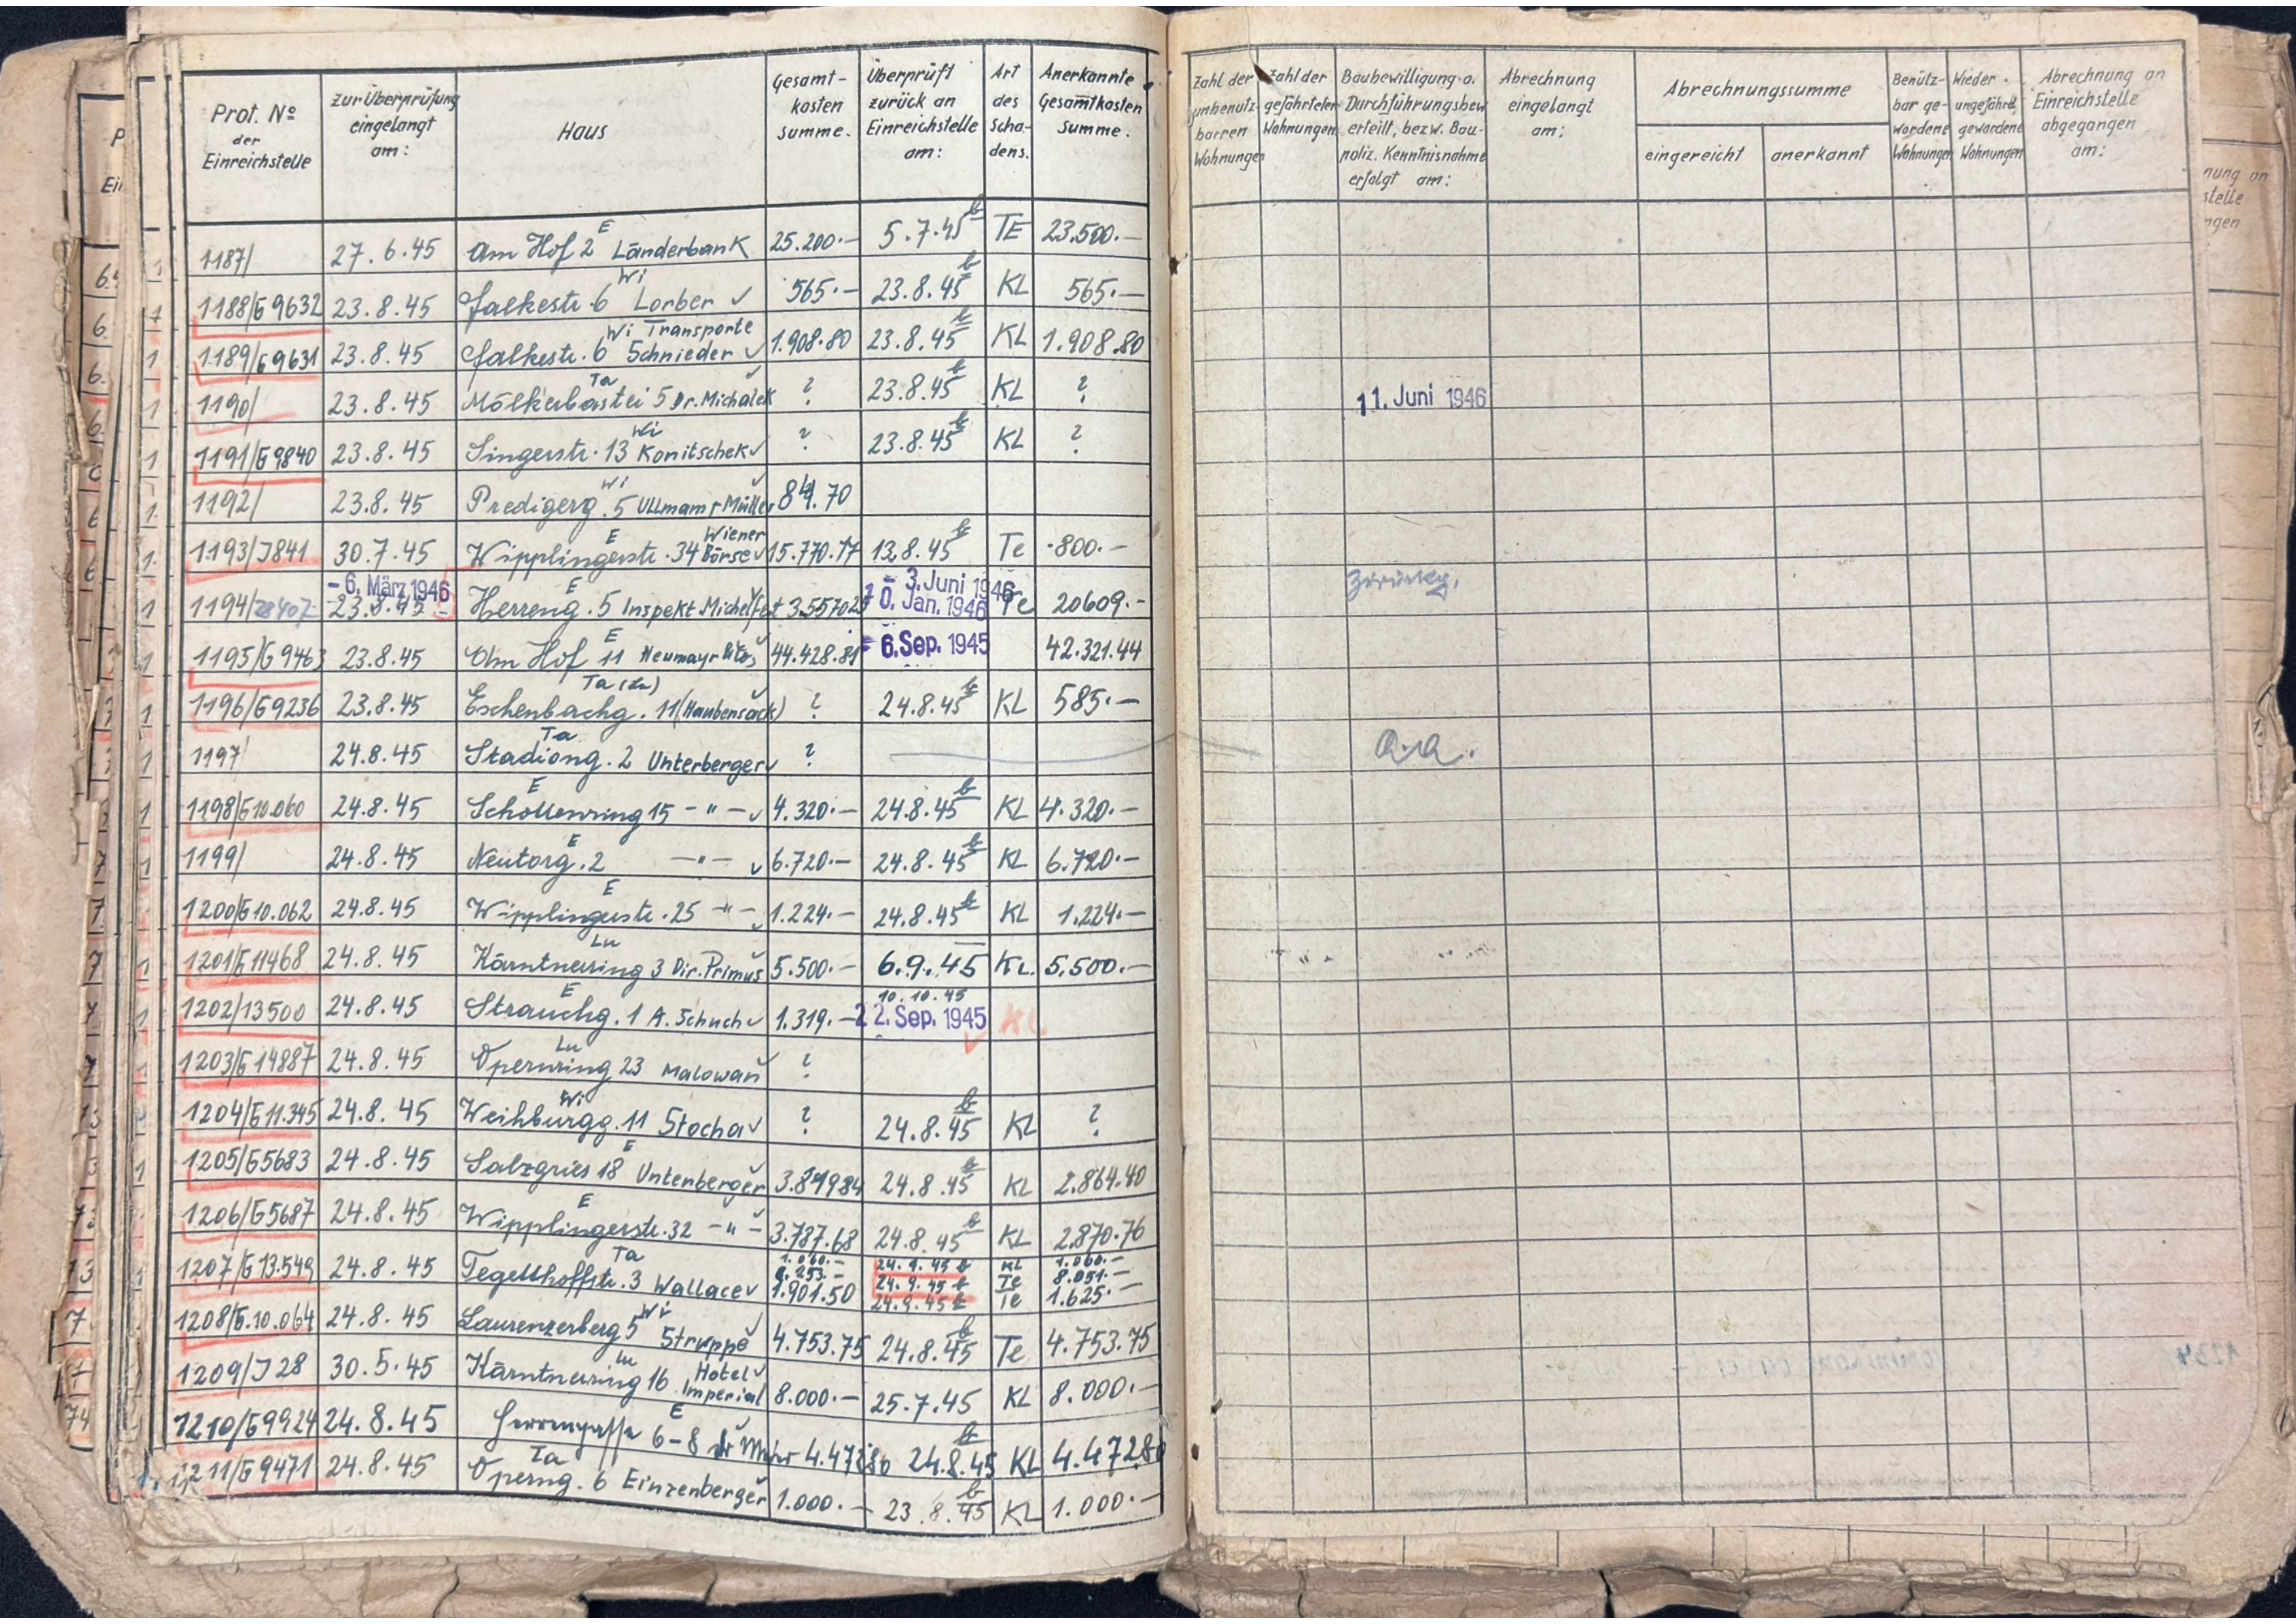 Prot. No der Einreichstelle | zur Überprüfung eingelangt am: | Haus | Gesamt-kosten summe. | Überprüft zurück an Einreichstelle am: | Art des Scha-dens. | Anerkannte Gesamtkosten Summe. | Zahl der unbenutz-barren Wohnungen | Zahl der gefährteten Wohnungen | Baubewilligung o. Durchführungsbew. erteilt, bezw. Bau-poliz. Kenntnisnahme erfolgt am: | Abrechnung eingelangt am: | Abrechnungssumme eingereicht | anerkannt | Benütz-bar ge-wordene Wohnungen | Wieder ungefährd. gewordene Wohnungen | Abrechnung an Einreichstelle abgegangen am:
1187/ 27.6.45 Am Hof 2 E Länderbank 25.200.— 5.7.45 TE 23.500.—
1188/G9632 23.8.45 Falkestr. 6 Wi Lorber 565.— 23.8.45 KL 565.—
1189/G9631 23.8.45 Falkestr. 6 Wi Transporte Schnieder 1.908.80 23.8.45 KL 1.908.80
1190/ 23.8.45 Mölkerbastei 5 Ta Dr. Michalek ? 23.8.45 KL ? 11. Juni 1946
1191/G9840 23.8.45 Singerstr. 13 Wi Konitschek ? 23.8.45 KL ?
1192/ 23.8.45 Predigerg. 5 Wi Ullmann Müller
1193/J841 30.7.45 Wipplingerstr. 34 E Wiener Börse 15.770.17 13.8.45 Te 800.—
1194/28407 - 6. März 1946 23.8.45 Herreng. 5 E Inspekt 3. Juni 1946 Jan. 1946 Te 20609.-
1195/G9463 23.8.45 Am Hof 11 E Neumayr 44.428.81 6. Sep. 1945 42.321.44
1196/G9236 23.8.45 Eschenbachg. 11 Ta (Haubensack) ? 24.8.45 KL 585.—
1197/ 24.8.45 Stadiong. 2 Ta Unterberger ? a.a.
1198/G10.060 24.8.45 Schottenring 15 E - " - 4.320.— 24.8.45 KL 4.320.—
1199/ 24.8.45 Neutorg. 2 E - " - 6.720.— 24.8.45 KL 6.720.—
1200/G10.062 24.8.45 Wipplingerstr. 25 E - " - 1.224.— 24.8.45 KL 1.224.—
1201/G11468 24.8.45 Kärntnerring 3 Lu Dir. Primus 5.500.— 6.9.45 KL. 5.500.—
1202/13500 24.8.45 Strauchg. 1 E A. Schuch 1.319.— 10.10.45 22. Sep. 1945 KL
1203/G14887 24.8.45 Opernring 23 Lu Malowan ?
1204/G11.345 24.8.45 Weihburgg. 11 Wi Stocha ? 24.8.45 KL ?
1205/G5683 24.8.45 Salzgries 18 E Unterberger 24.8.45 KL 2.864.40
1206/G5687 24.8.45 Wipplingerstr. 32 E - " - 3.787.68 24.8.45 KL 2.870.76
1207/G13.549 24.8.45 Tegetthoffstr. 3 Ta Wallace 1.060.— 24.9.45 KL 1.060.—
24.9.45 Te 8.051.—
1.901.50 24.9.45 Te 1.625.—
1208/G.10.064 24.8.45 Laurenzerberg 5 Wi Struppe 4.753.75 24.8.45 Te 4.753.75
1209/J28 30.5.45 Kärntnerring 16 Lu Hotel Imperial 8.000.— 25.7.45 KL 8.000.—
1210/G9924 24.8.45 Herrengasse 6-8 E 4.472.80 24.8.45 KL 4.472.80
1211/G9471 24.8.45 Operng. 6 Ta Einzenberger 1.000.— 23.8.45 KL 1.000.—